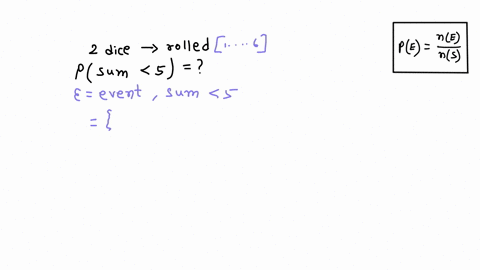 2 dice → rolled [1....6]
P(sum < 5) = ?
E = event, sum < 5
= {
P(E) = n(E)/n(S)